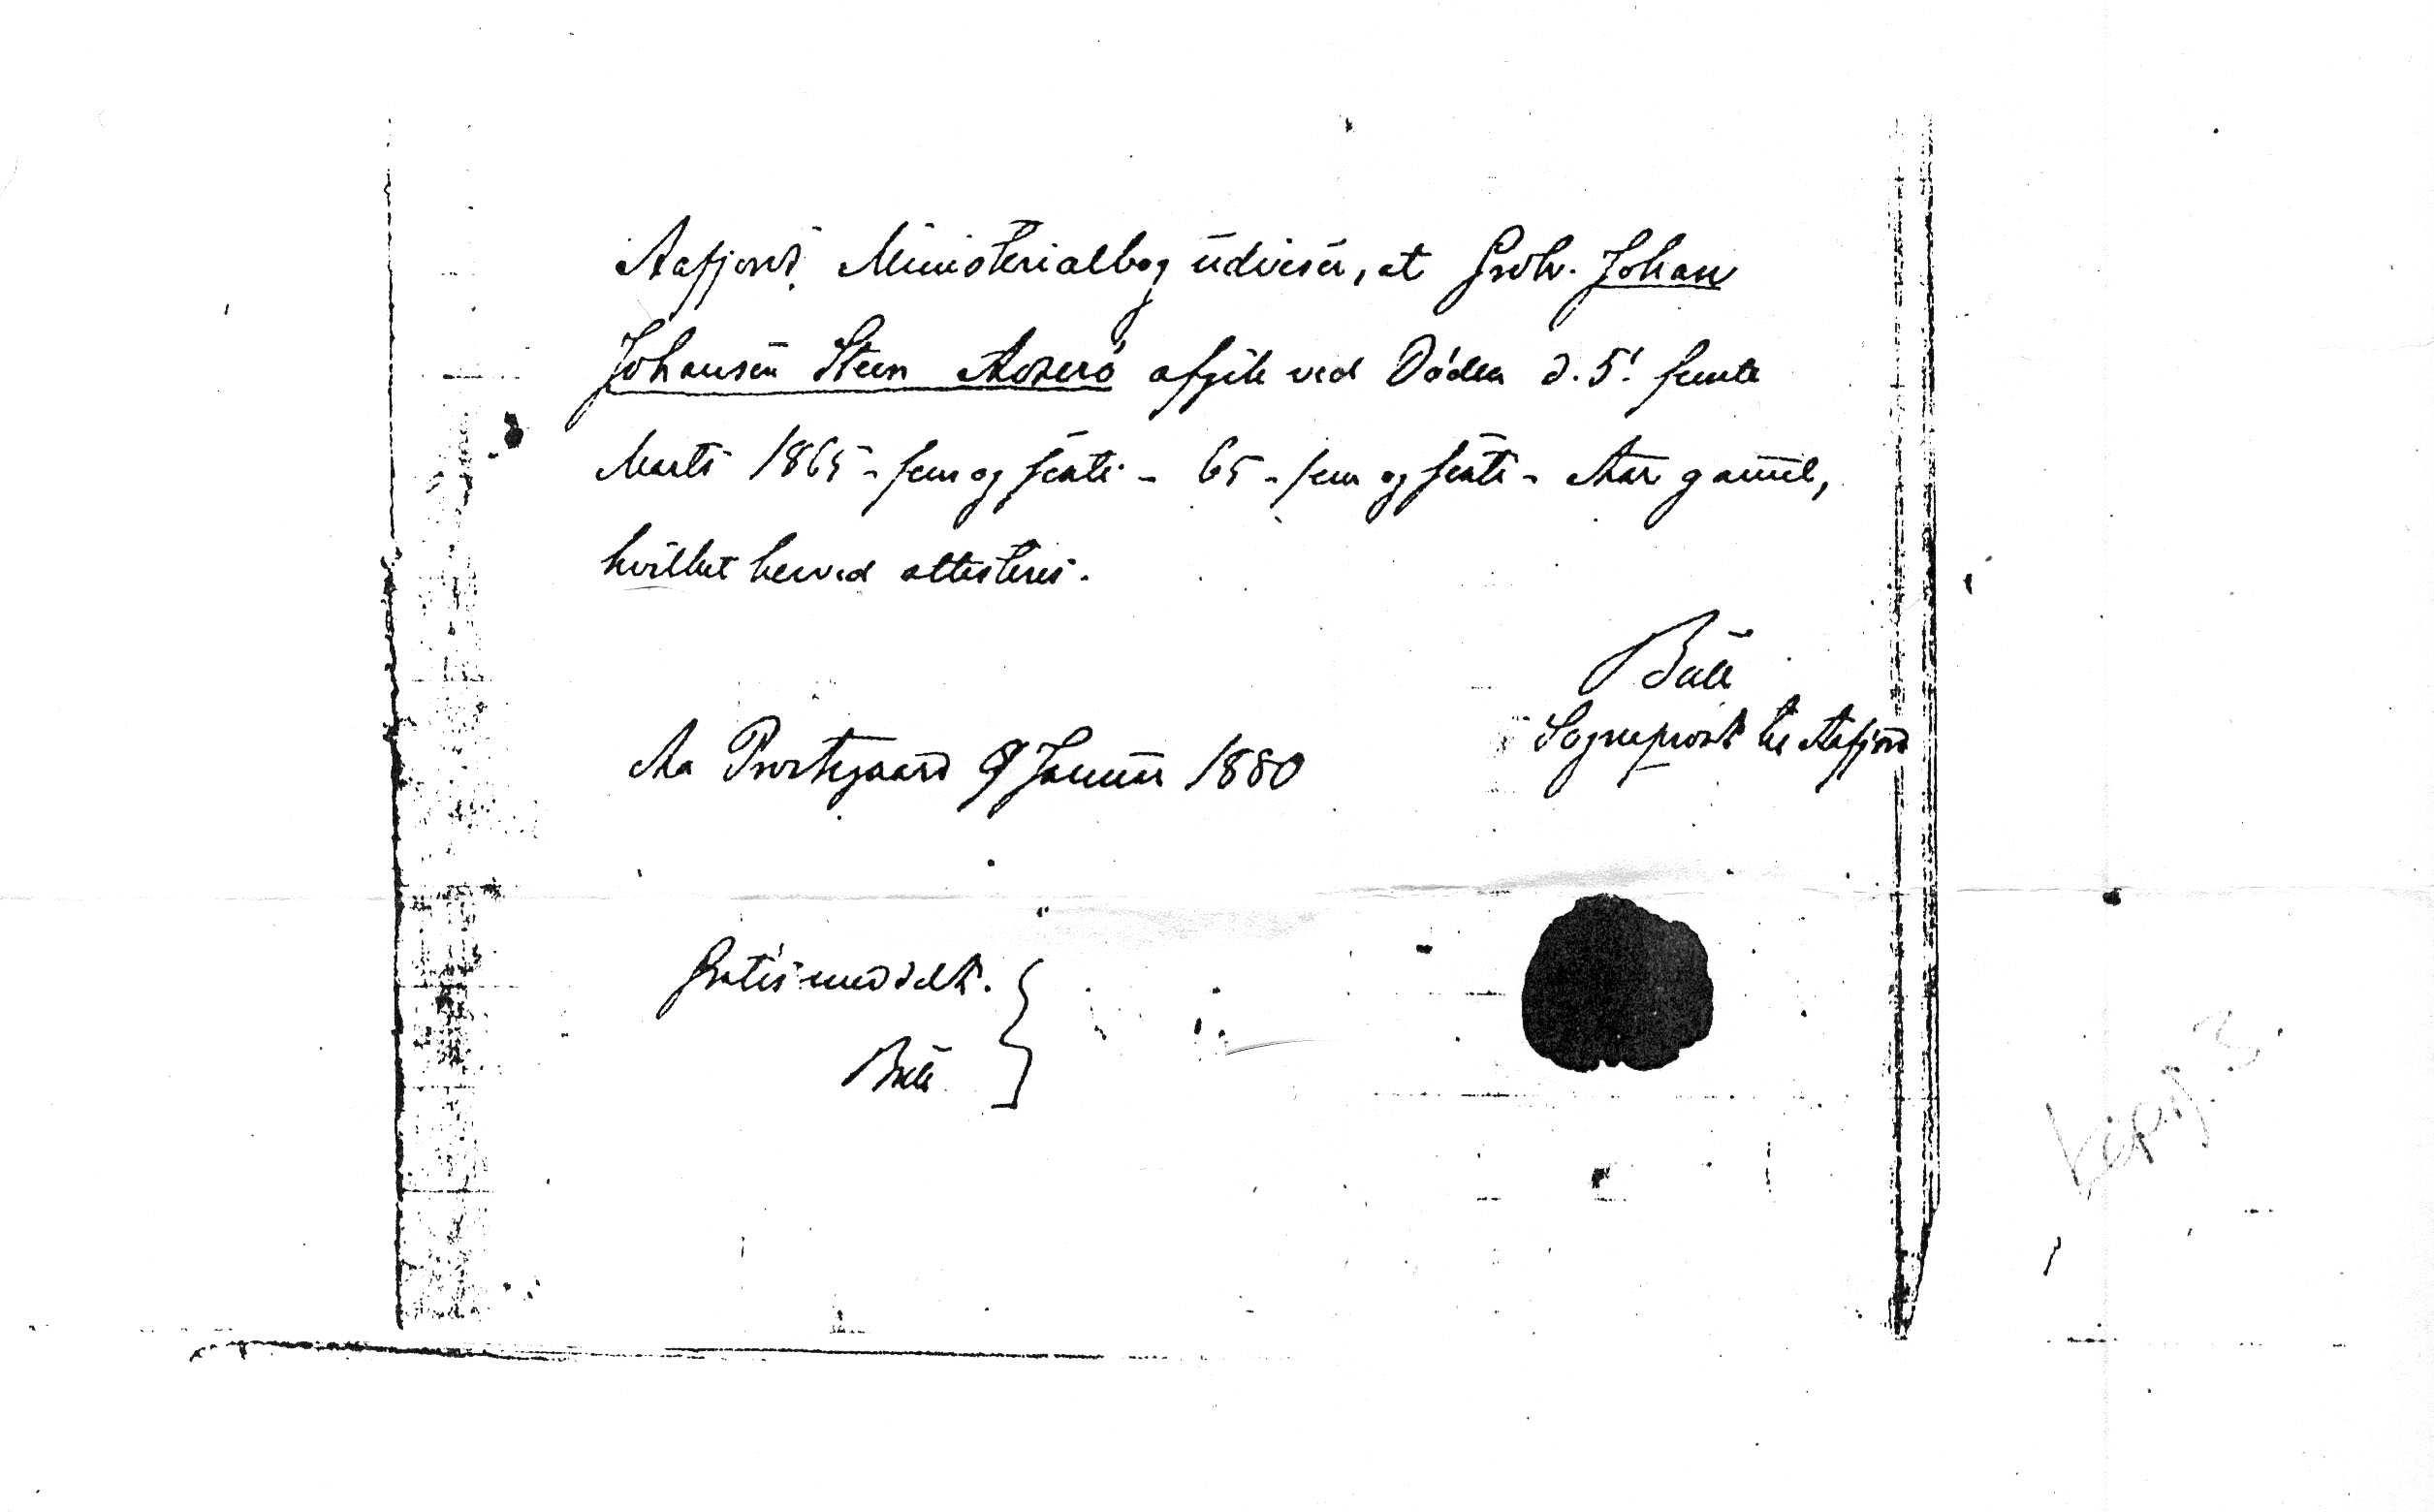 Aafjords Ministerialbog udviser, at Grdbr. Johan
Johansen Steen Aoserø afgik ved Døden d. 5! femte
Marts 1865 - fem og sexti - 65 - fem og sexti - Aar gammel,
hvilket herved attesteres.
Bull
Sogneprest til Aafjord
Aa Prestegaard 9 Januar 1880
Gratis meddelt.
Bull
kopi 3.